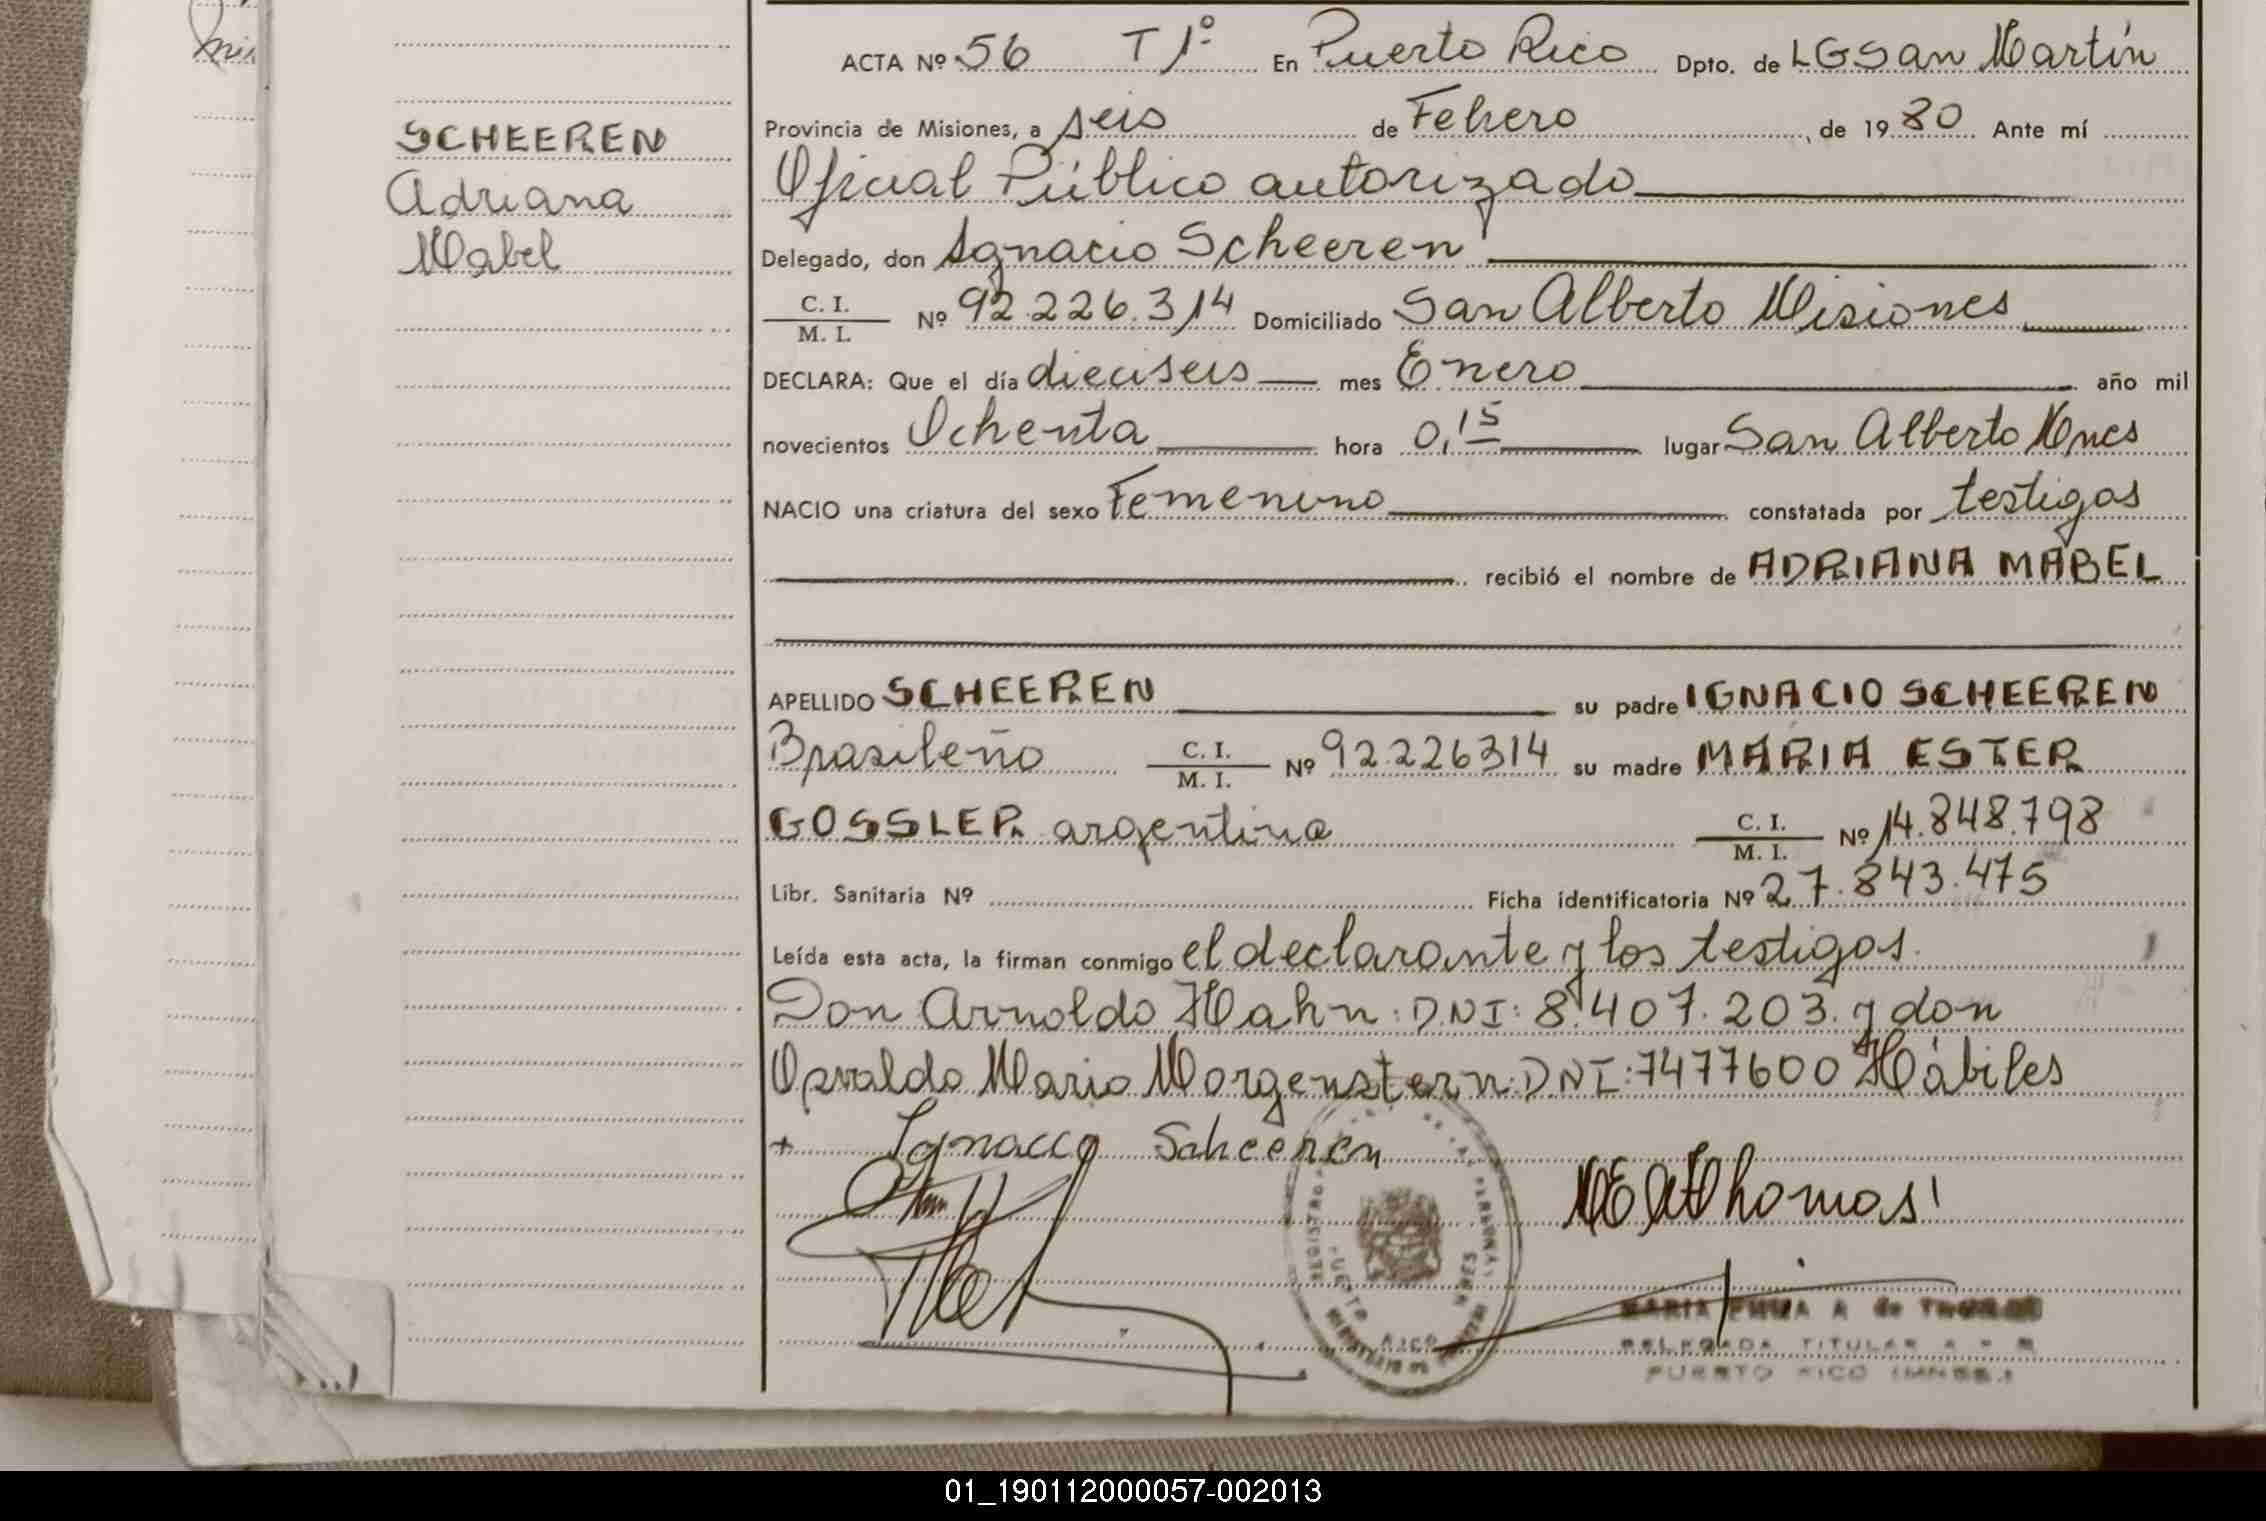 SCHEEREN
Adriana
Mabel
ACTA Nº 56 T 1º En Puerto Rico Dpto. de LGSan Martín
Provincia de Misiones, a seis de Febrero, de 1980 Ante mí
Oficial Público autorizado
Delegado, don Ignacio Scheeren
C. I. / M. I. Nº 92.226.314 Domiciliado San Alberto Misiones
DECLARA: Que el día dieciseis mes Enero año mil
novecientos Ochenta hora 0,15 lugar San Alberto Mnes
NACIO una criatura del sexo Femenino constatada por testigos
recibió el nombre de ADRIANA MABEL
APELLIDO SCHEEREN su padre IGNACIO SCHEEREN
Brasileño C. I. / M. I. Nº 92.226314 su madre MARIA ESTER
GOSSLER argentina C. I. / M. I. Nº 14.848.798
Libr. Sanitaria Nº Ficha identificatoria Nº 27.843.475
Leída esta acta, la firman conmigo el declarante y los testigos.
Don Arnoldo Hahn: D.N.I: 8.407.203. y don
Osvaldo Mario Morgenstern: D.N.I: 7477600 Hábiles
+ Ignacio Scheeren
MEAThomas
PUERTO RICO
MARIA EMMA A de
DELEGADA TITULAR
PUERTO RICO (MNES.)
01_190112000057-002013